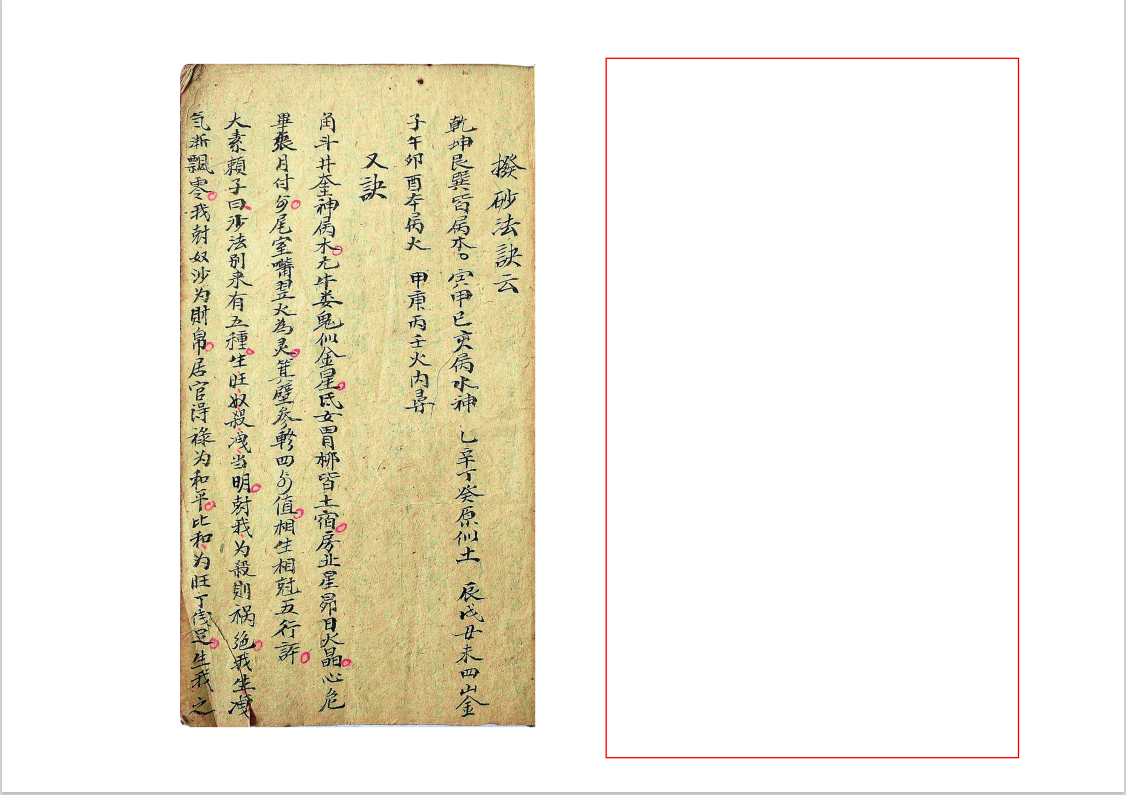 撥砂法訣云
乾坤艮巽皆屬木。寅甲巳亥屬水神 乙辛丁癸原似土 辰戌丑未四山金
子午卯酉本屬火 甲庚丙壬火内尋
又訣
角斗井奎神屬木亢牛娄鬼似金星氐女胃柳皆土宿房虚星昴日火晶心危
畢張月付身尾室嘴翌火為灵箕壁参軫四身值相生相尅五行評
大素賴子曰沙法别来有五種生旺奴殺洩当明尅我为殺則祸絶我生洩
気渐飄零我尅奴沙为財帛居官得祿为和平比和为旺丁后足生我之